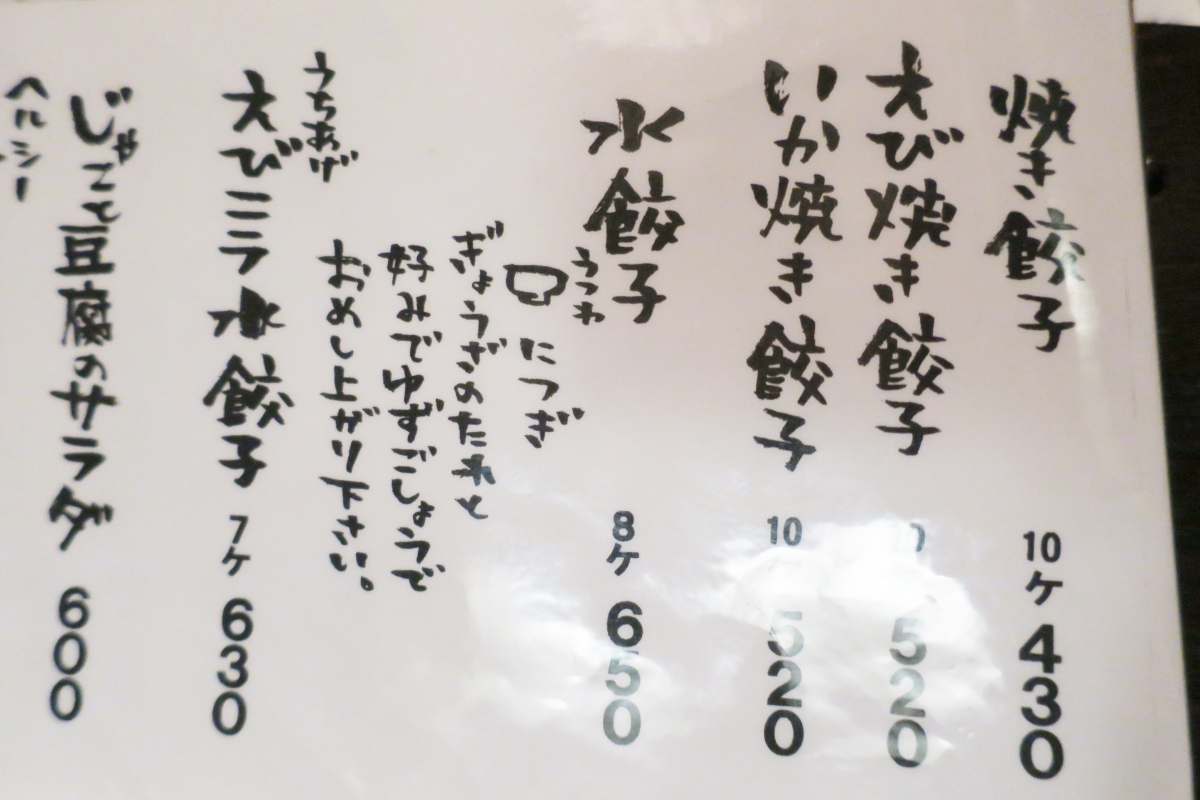 焼き餃子 10ヶ 430
えび焼き餃子 520
いか焼き餃子 10 520
水餃子 8ヶ 650
うつわ
につぎ
ぎょうざのたれと
好みでゆずごしょうで
おめし上がり下さい。
うちあげ
えびニラ水餃子 7ヶ 630
じゃこと豆腐のサラダ 600
ヘルシー